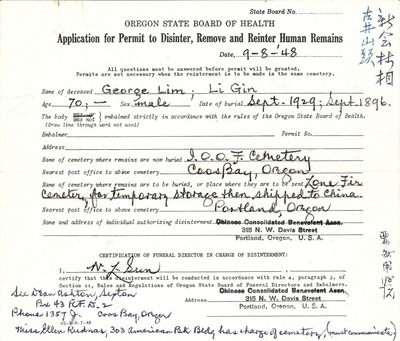 State Board No.
OREGON STATE BOARD OF HEALTH
Application for Permit to Disinter, Remove and Reinter Human Remains
Date, 9-8-'48
All questions must be answered before permit will be granted.
Permits are not necessary when the reinterment is to be made in the same cemetery.
Name of deceased George Lim; Li Gin
Age 70; — Sex male Date of burial Sept-1929; Sept 1896.
The body was was not embalmed strictly in accordance with the rules of the Oregon State Board of Health.
(Draw line through word not used)
Embalmer Permit No.
Address
Name of cemetery where remains are now buried I.O.O.F. Cemetery
Nearest post office to above cemetery Coos Bay, Oregon
Name of cemetery where remains are to be buried, or place where they are to be sent Lone Fir
Cemetery, for temporary storage then shipped to China.
Nearest post office to above cemetery Portland, Oregon
Name and address of individual authorizing disinterment Chinese Consolidated Benevolent Assn.
315 N.W. Davis Street
Portland, Oregon, U. S. A.
CERTIFICATION OF FUNERAL DIRECTOR IN CHARGE OF DISINTERMENT:
I,
this disinterment will be conducted in accordance with rule 4, paragraph 3, of
Section 11, Rules and Regulations of Oregon State Board of Funeral Directors and Embalmers.
Chinese Consolidated Benevolent Assn.
315 N.W. Davis Street
Portland, Oregon, U. S. A.
See Dean Ashton, Sexton
Box 43 Rt. D-2
Phone 1357 J. Coos Bay, Oregon
Miss Ellen 303 American Bk Bldg has charge of cemetery (must communicate)